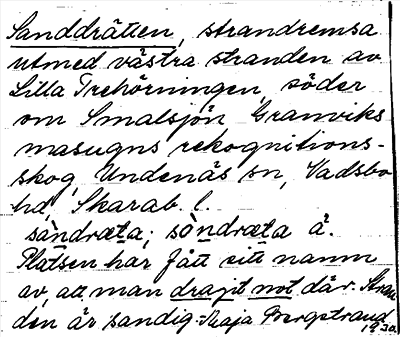 Sanddrätten, strandremsa
utmed västra stranden av
Lilla Trehörningen, söder
om Smalsjön, Granviks
masugns rekognitions-
skog, Undenäs sn, Vadsbo
hd, Skarab. l.
sàndræta; sòndræta å.
Platsen har fått sitt namn
av, att man dragit not där. Stran
den är sandig. Maja Bergstrand
1930.